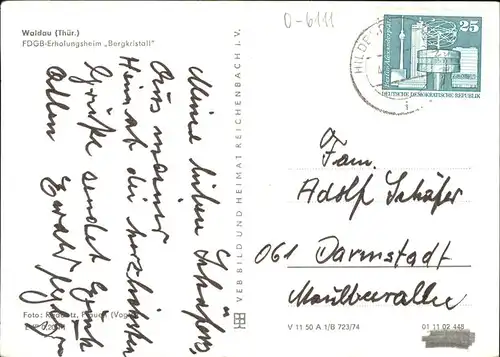 Waldau (Thür.)
FDGB-Erholungsheim „Bergkristall"
O-6111
25
HILD
Berlin · Alexanderplatz
DEUTSCHE DEMOKRATISCHE REPUBLIK
Meine lieben Schäfers,
Aus meiner
Heimat die herzlichsten
Grüße sendet Euch
allen Ewald
VEB BILD UND HEIMAT REICHENBACH i. V.
Fam.
Adolf Schäfer
061 Darmstadt
Maulbeerallee
Foto: Plauen (Vogtl
V 11 50 A 1/B 723/74
01 11 02 448